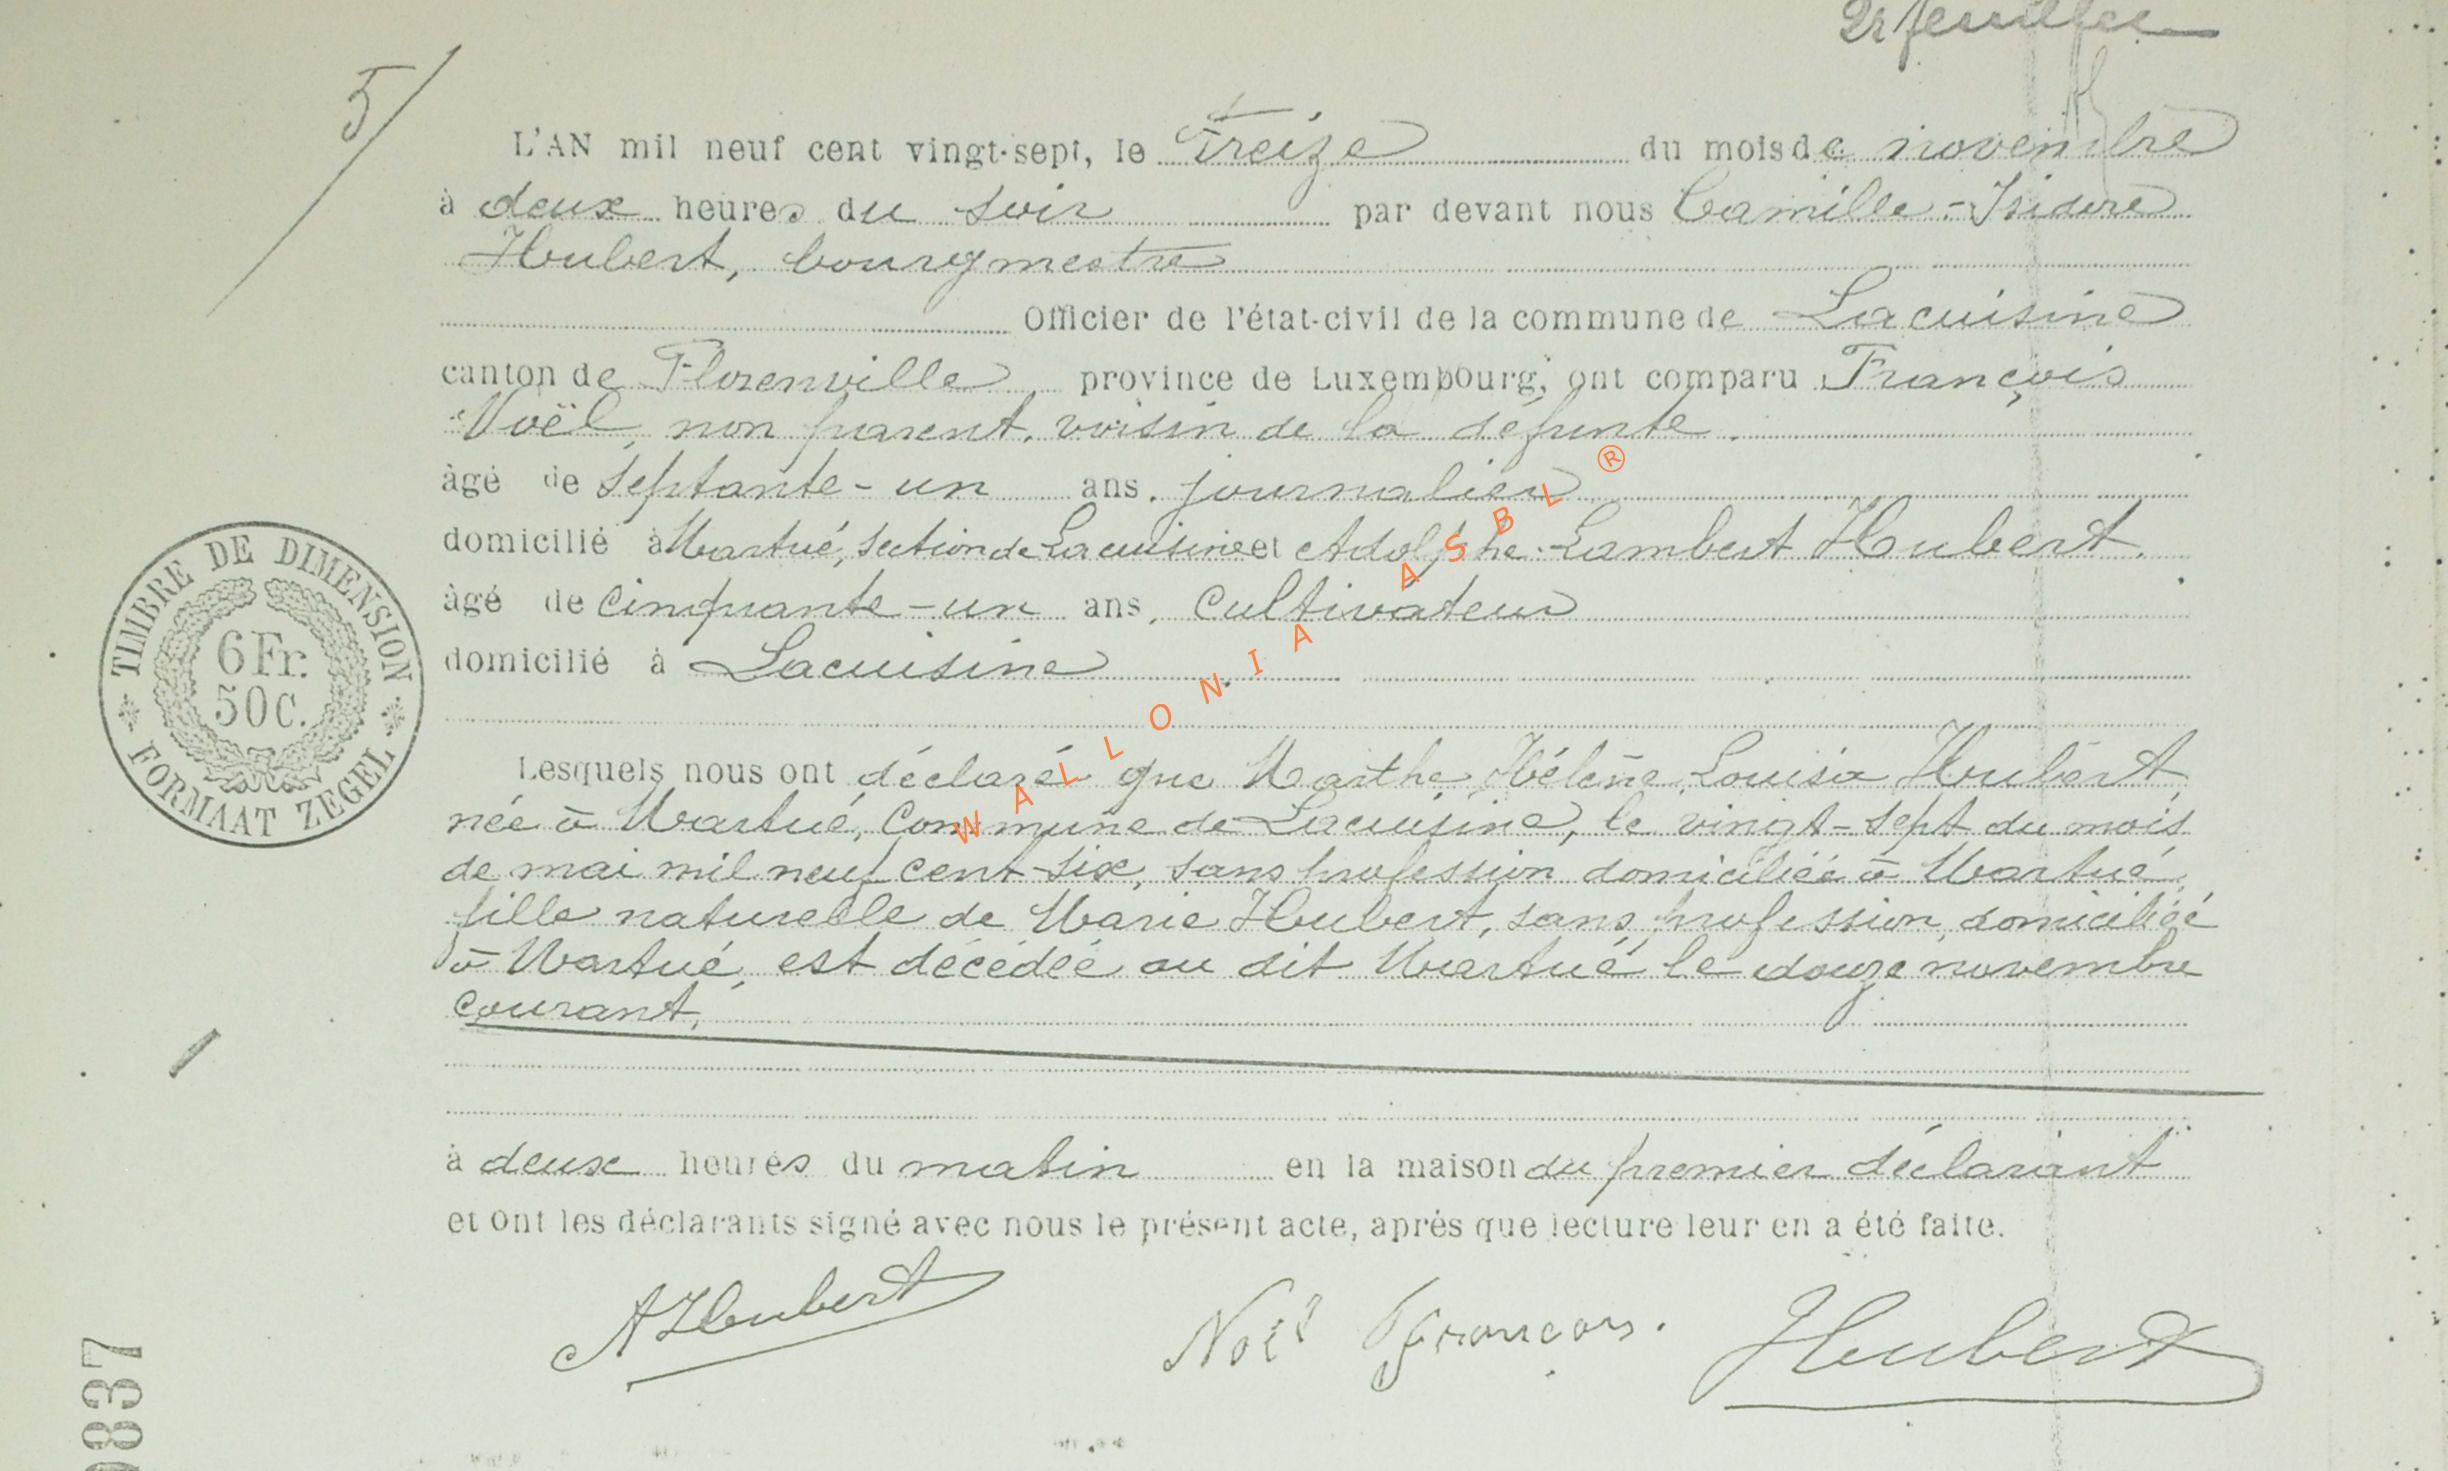 2e feuillee
5/
L'AN mil neuf cent vingt-sept, le Treize du mois de novembre
à deux heures du soir par devant nous Camille-Isidore
Hubert, bourgmestre
Officier de l'état-civil de la commune de Lacuisine
canton de Florenville province de Luxembourg, ont comparu François
Noël, non parent, voisin de la défunte.
âgé de septante-un ans, journalier
domicilié à Martué, section de Lacuisine et Adolphe-Lambert Hubert,
âgé de cinquante-un ans, cultivateur
domicilié à Lacuisine
TIMBRE DE DIMENSION
6 Fr.
50 C.
FORMAAT ZEGEL
Lesquels nous ont déclaré que Marthe, Hélène, Louisa Hubert
née à Martué, Commune de Lacuisine, le vingt-sept du mois
de mai mil neuf cent-six, sans profession domiciliée à Martué,
fille naturelle de Marie Hubert, sans profession, domiciliée
à Martué, est décédée au dit Martué le douze novembre
courant,
à deux heures du matin en la maison du premier déclarant
et ont les déclarants signé avec nous le présent acte, après que lecture leur en a été faite.
AHubert Noël François. Hubert
WALLONIA ASBL ®